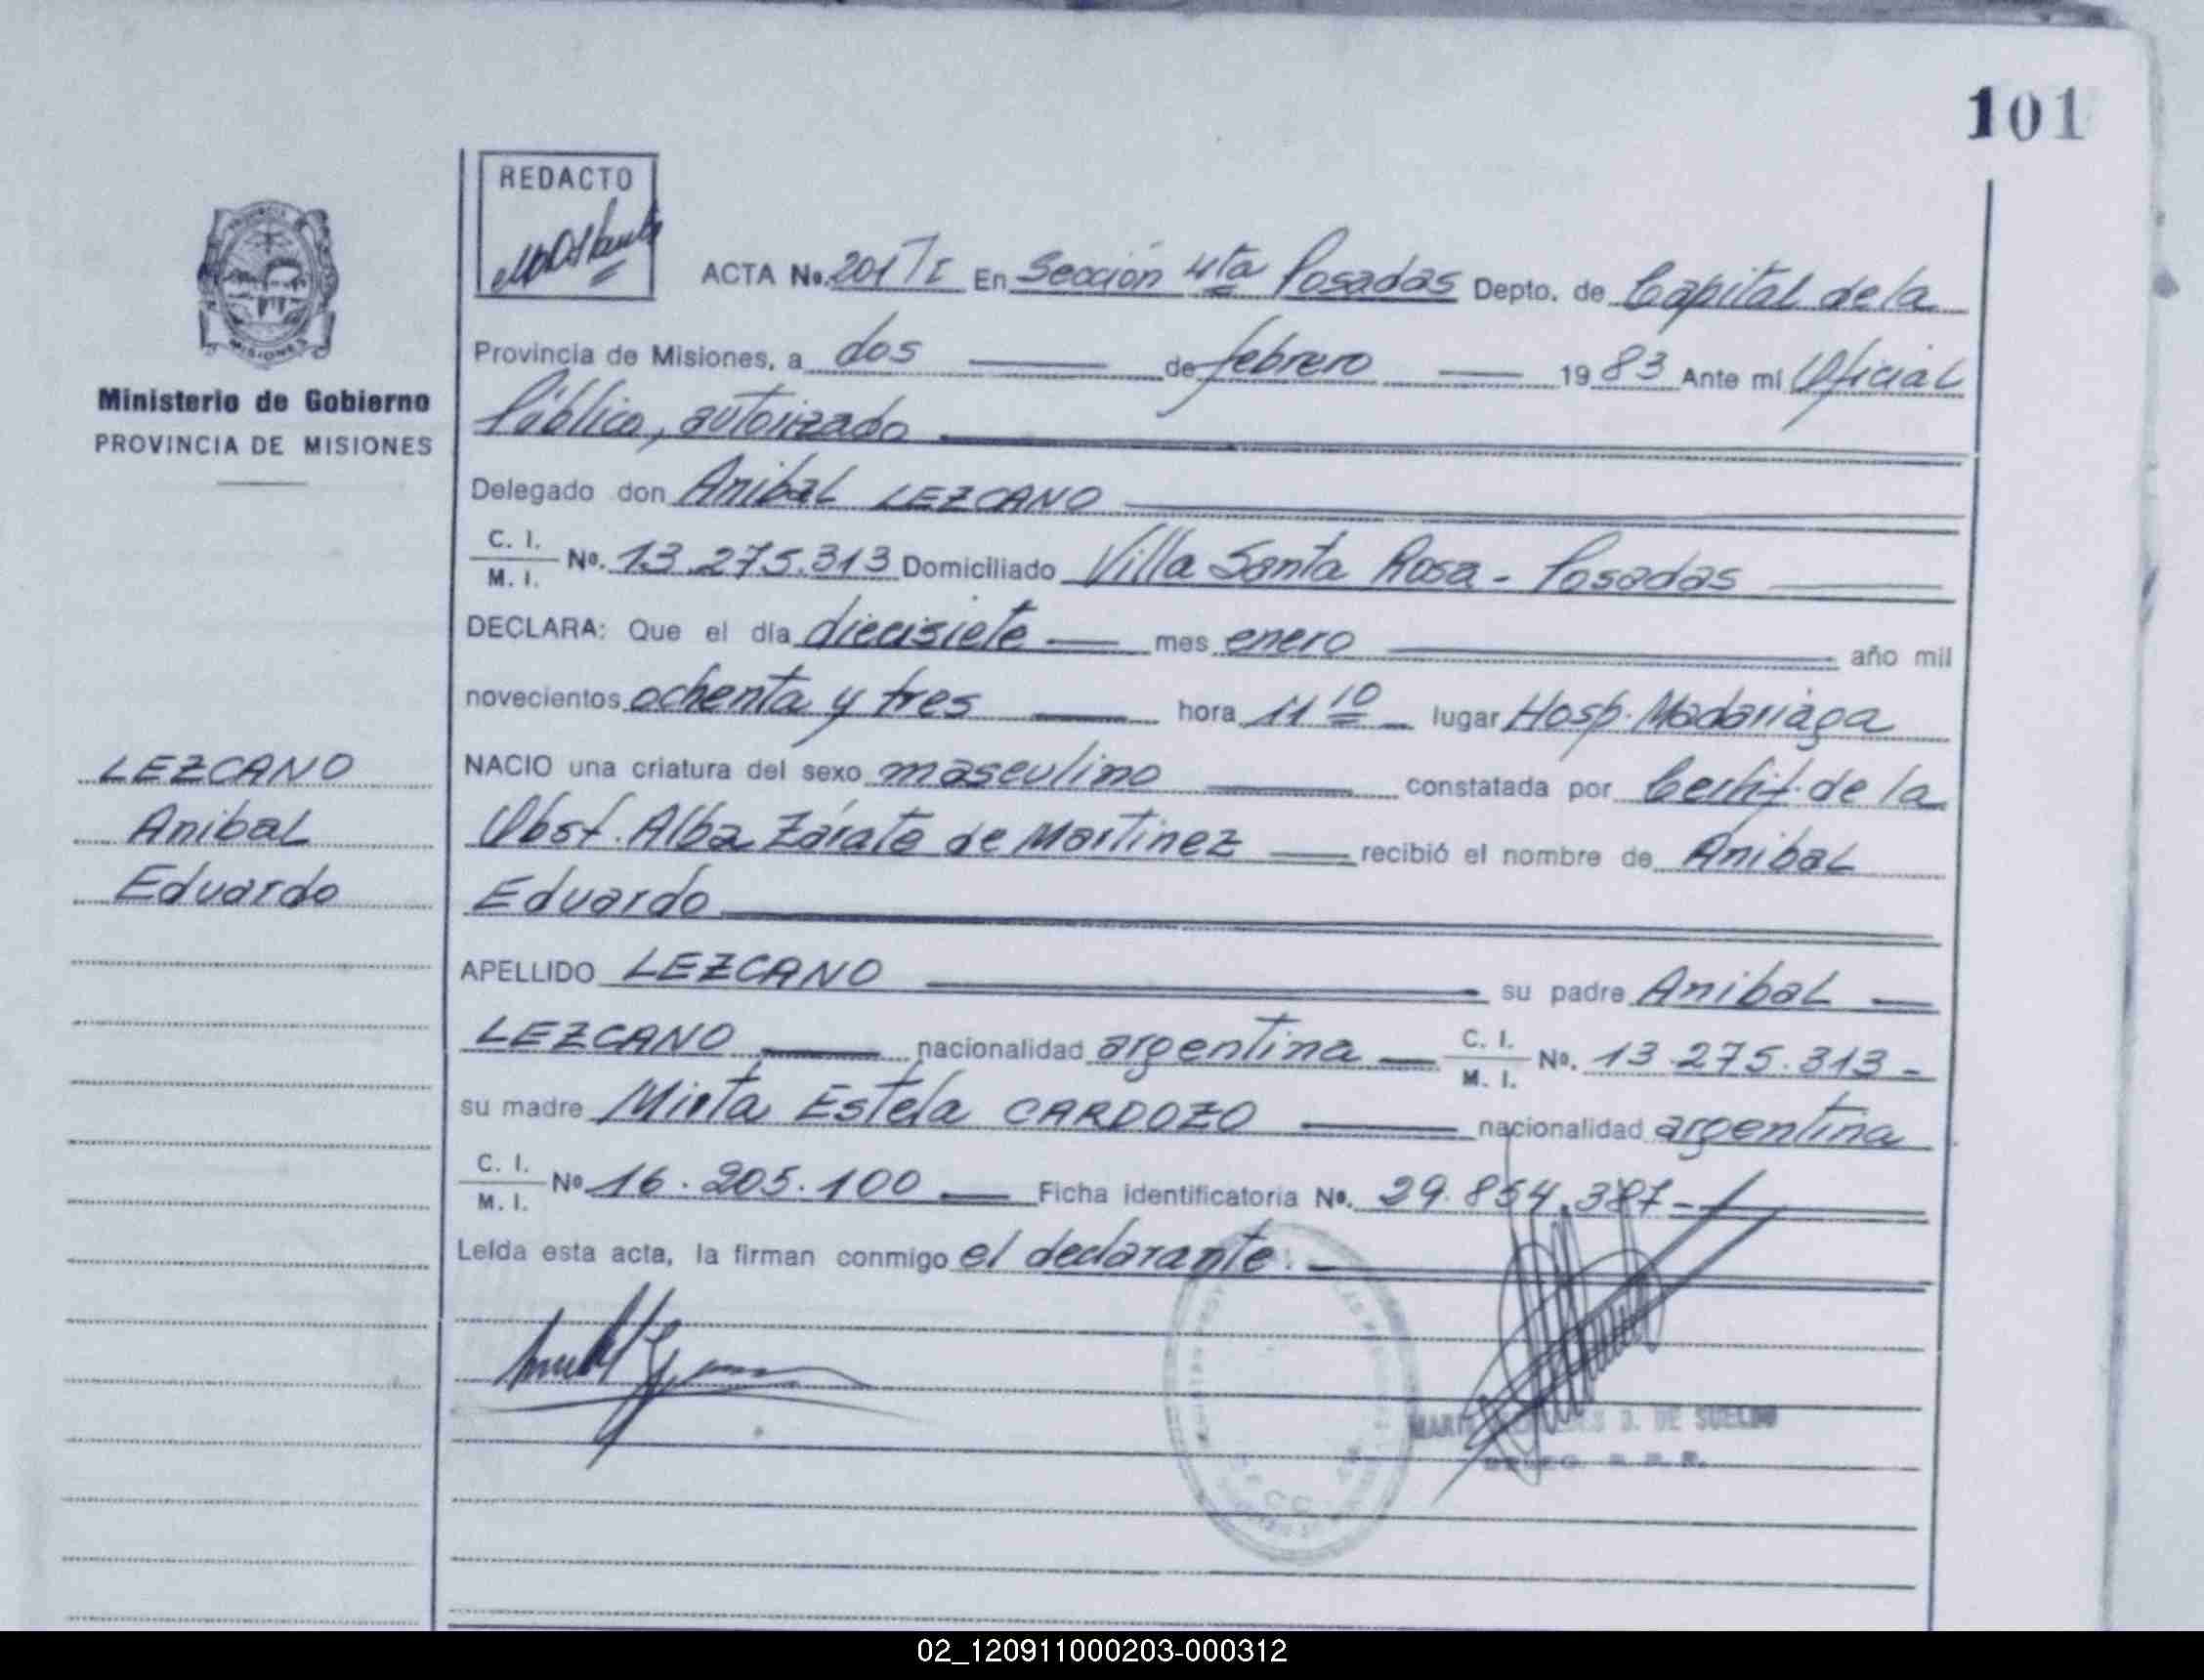 101
REDACTO
ACTA No. 201 T I En Sección 4ta Posadas Depto. de Capital de la
Provincia de Misiones, a dos de febrero 1983 Ante mí Oficial
Público, autorizado
MISIONES
Ministerio de Gobierno
PROVINCIA DE MISIONES
Delegado don Anibal LEZCANO
C. I.
M. I. No. 13.275.313 Domiciliado Villa Santa Rosa - Posadas
DECLARA: Que el día diecisiete mes enero año mil
novecientos ochenta y tres hora 11 10 lugar Hosp. Madariaga
LEZCANO
Anibal
Eduardo
NACIO una criatura del sexo masculino constatada por Certif. de la
Obst. Alba Zárate de Martinez recibió el nombre de Anibal
Eduardo
APELLIDO LEZCANO su padre Anibal
LEZCANO nacionalidad argentina C. I. M. I. No. 13.275.313 -
su madre Mirta Estela CARDOZO nacionalidad argentina
C. I.
M. I. No 16.205.100 Ficha identificatoria No. 29.854.387 -
Leída esta acta, la firman conmigo el declarante.
D. DE SUELDO
02_120911000203-000312